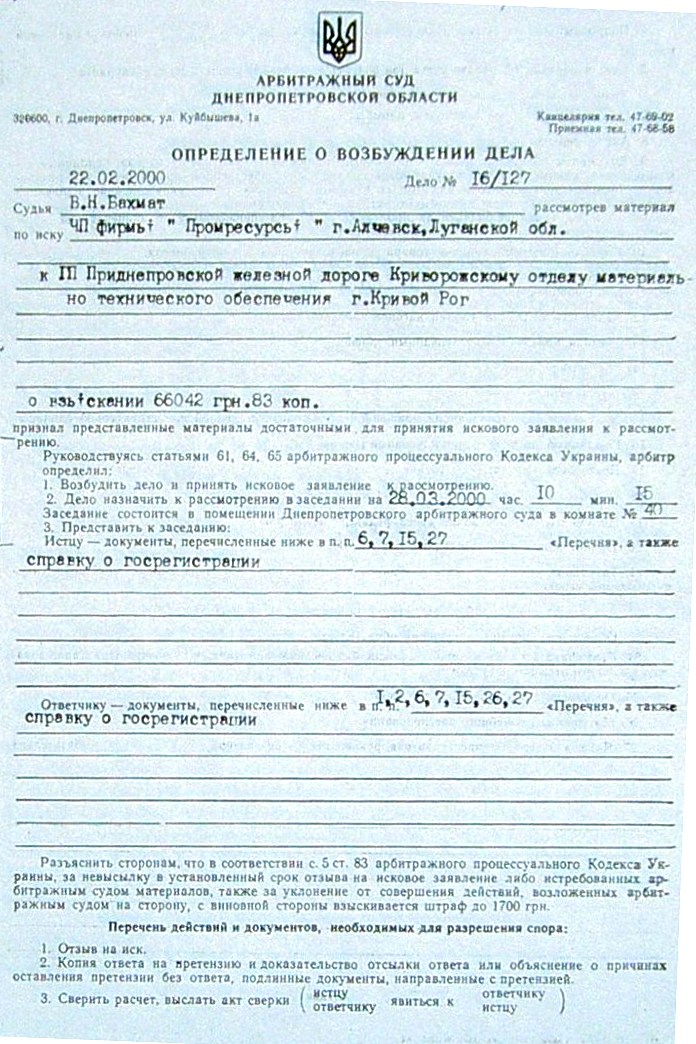 АРБИТРАЖНЫЙ СУД
ДНЕПРОПЕТРОВСКОЙ ОБЛАСТИ
320600, г. Днепропетровск, ул. Куйбышева, 1а
Канцелярия тел. 47-69-02
Приемная тел. 47-68-58
ОПРЕДЕЛЕНИЕ О ВОЗБУЖДЕНИИ ДЕЛА
22.02.2000 Дело № I6/I27
Судья В.Н.Бахмат рассмотрев материал
по иску ЧП фирмы " Промресурсы " г.Алчевск,Луганской обл.
к ГП Приднепровской железной дороге Криворожскому отделу материаль-
но технического обеспечения г.Кривой Рог
о взыскании 66042 грн.83 коп.
признал представленные материалы достаточными для принятия искового заявления к рассмот-
рению.
Руководствуясь статьями 61, 64, 65 арбитражного процессуального Кодекса Украины, арбитр
определил:
1. Возбудить дело и принять исковое заявление к рассмотрению.
2. Дело назначить к рассмотрению в заседании на 28.03.2000 час. I0 мин. I5
Заседание состоится в помещении Днепропетровского арбитражного суда в комнате № 40
3. Представить к заседанию:
Истцу — документы, перечисленные ниже в п. п. 6,7,I5,27 «Перечня», а также
справку о госрегистрации
Ответчику — документы, перечисленные ниже в п. п. I,2,6,7,I5,26,27 «Перечня», а также
справку о госрегистрации
Разъяснить сторонам, что в соответствии с. 5 ст. 83 арбитражного процессуального Кодекса Ук-
раины, за невысылку в установленный срок отзыва на исковое заявление либо истребованных ар-
битражным судом материалов, также за уклонение от совершения действий, возложенных арбит-
ражным судом на сторону, с виновной стороны взыскивается штраф до 1700 грн.
Перечень действий и документов, необходимых для разрешения спора:
1. Отзыв на иск.
2. Копия ответа на претензию и доказательство отсылки ответа или объяснение о причинах
оставления претензии без ответа, подлинные документы, направленные с претензией.
3. Сверить расчет, выслать акт сверки ( истцу ответчику явиться к ответчику истцу )